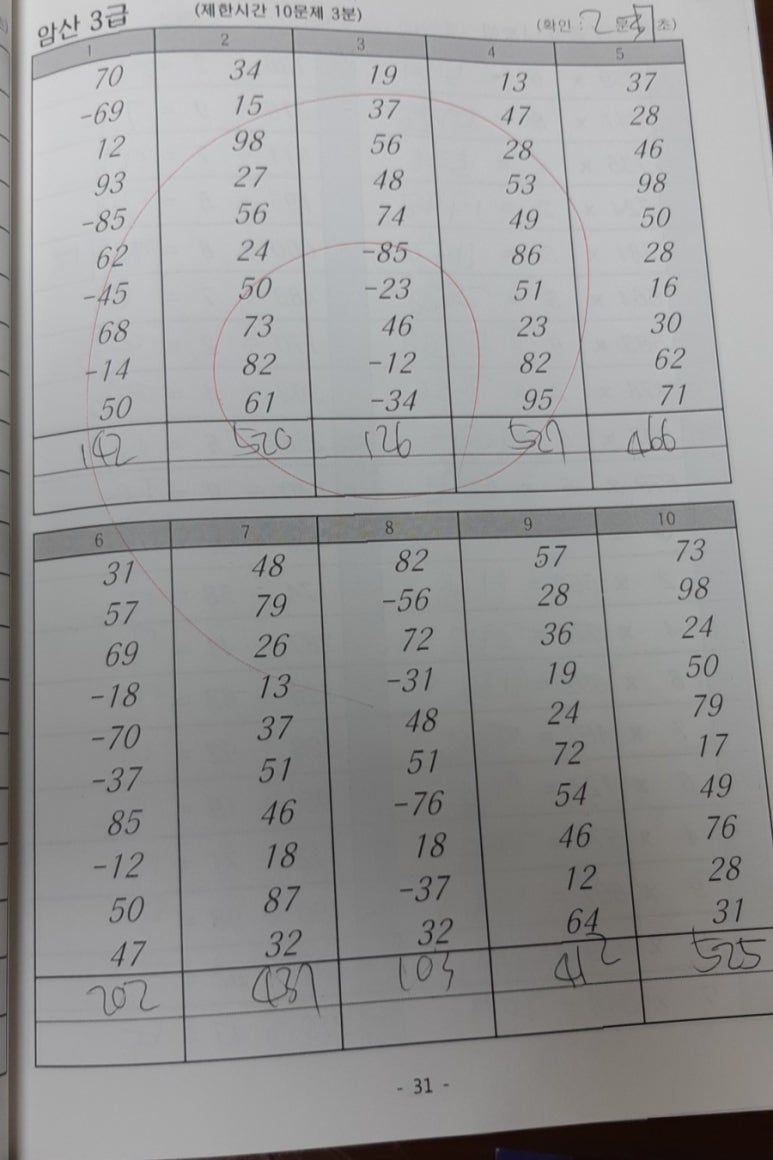 암산 3급 (제한시간 10문제 3분) (확인 : 2 분 초)
1 2 3 4 5
70 34 19 13 37
-69 15 37 47 28
12 98 56 28 46
93 27 48 53 98
-85 56 74 49 50
62 24 -85 86 28
-45 50 -23 51 16
68 73 46 23 30
-14 82 -12 82 62
50 61 -34 95 71
142 520 126 527 466
6 7 8 9 10
31 48 82 57 73
57 79 -56 28 98
69 26 72 36 24
-18 13 -31 19 50
-70 37 48 24 79
-37 51 51 72 17
85 46 -76 54 49
-12 18 18 46 76
50 87 -37 12 28
47 32 32 64 31
202 437 103 412 525
- 31 -